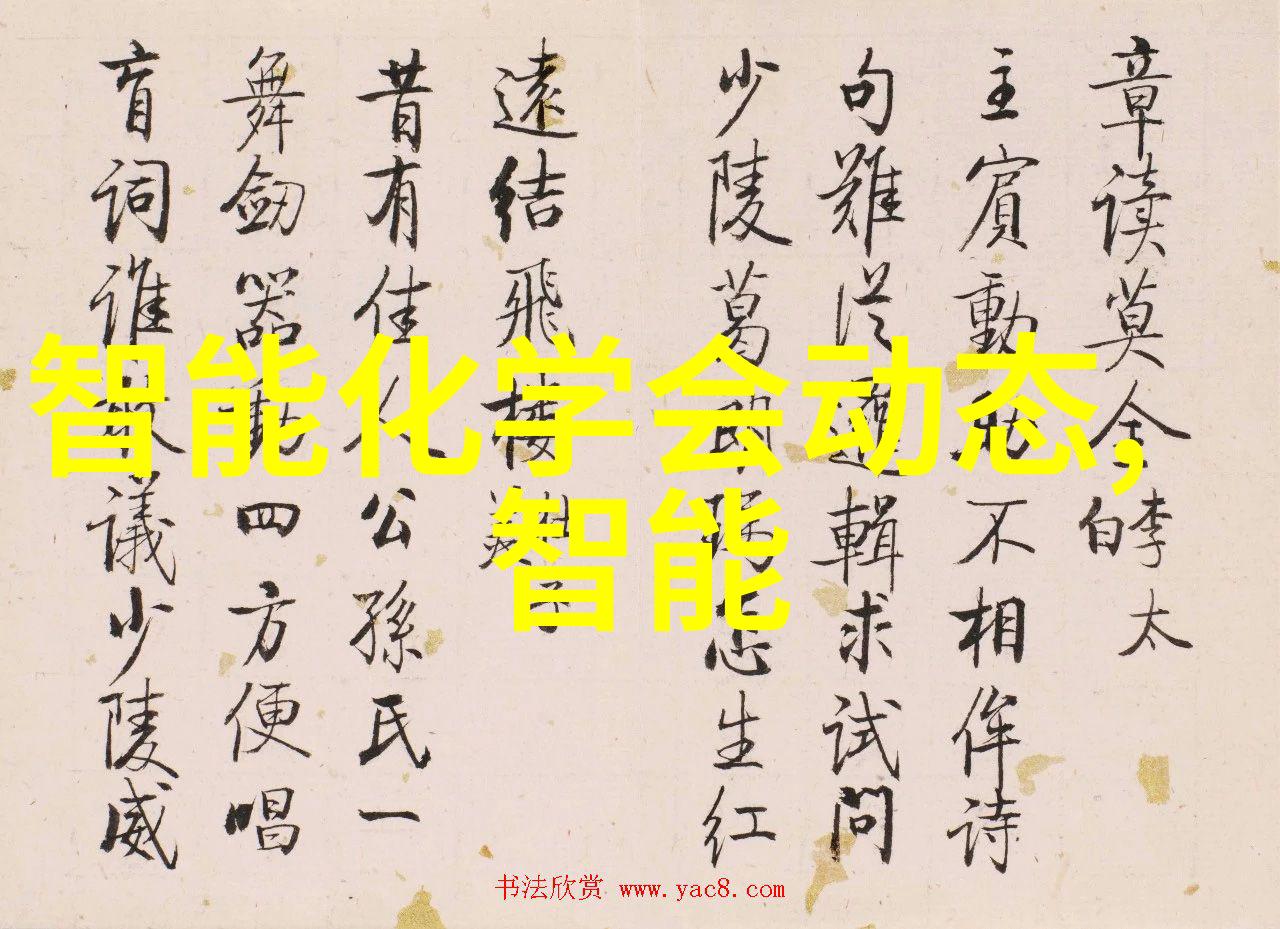 章读莫全李太白
主賓動不相侔诗
句難從輯求试问
少陵葛生红
遠结飛樓
昔有佳人公孫氏一
舞劒器動四方便唱
盲词谁議少陵威
智能化学会动态,
智能
书法欣赏 www.yac8.com